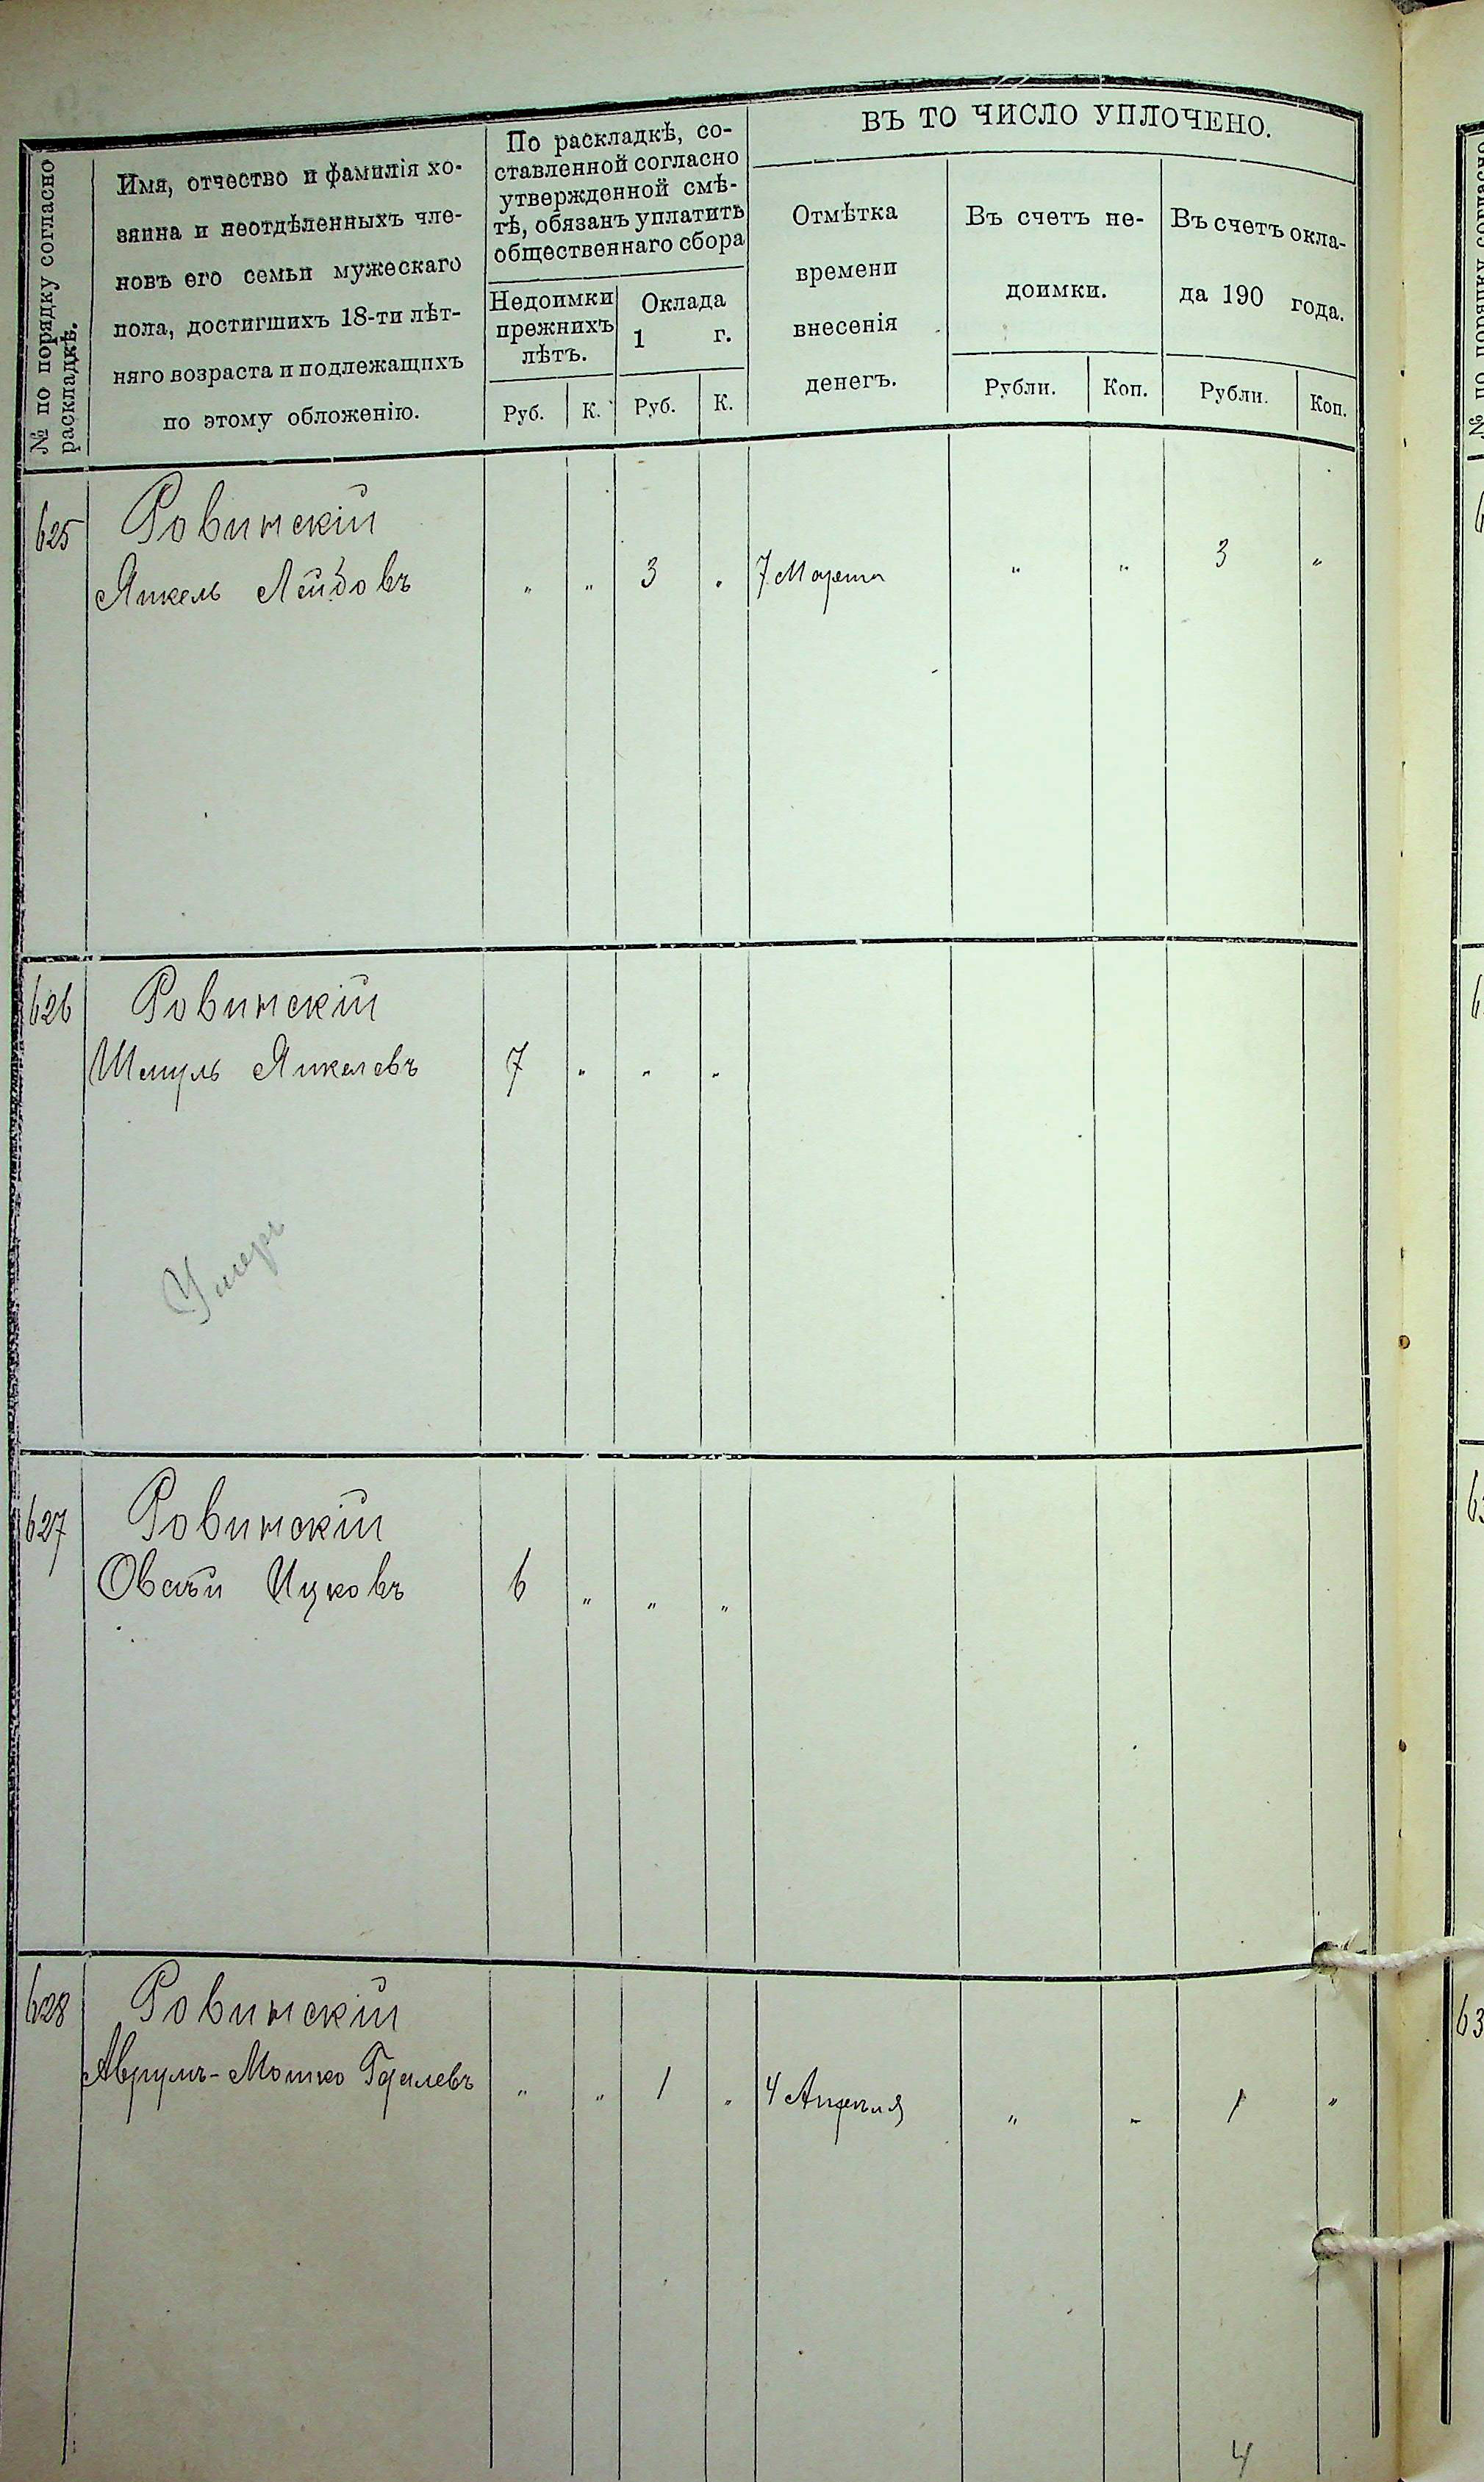 № по порядку согласно
раскладкѣ.
Имя, отчество и фамилія хо-
зяина и неотдѣленныхъ чле-
новъ его семьи мужескаго
пола, достигшихъ 18-ти лѣт-
няго возраста и подлежащихъ
по этому обложенію.
По раскладкѣ, со-
ставленной согласно
утвержденной смѣ-
тѣ, обязанъ уплатить
общественнаго сбора
Недоимки
прежнихъ
лѣтъ.
Оклада
1 г.
Руб. К. Руб. К.
ВЪ ТО ЧИСЛО УПЛОЧЕНО.
Отмѣтка
времени
внесенія
денегъ.
Въ счетъ не-
доимки.
Рубли. Коп.
Въ счетъ окла-
да 190 года.
Рубли. Коп.
625 Ровинскій
Янкель Лейбовъ " " 3 " 7 Марта " " 3 "
626 Ровинскій
Шмуль Янкелевъ 7 " " "
Умеръ
627 Ровинскій
Ицковъ 6 " " "
628 Ровинскій
Аврумъ-Мошко Гдалевъ " " 1 " 4 Апрѣля " " 1 "
4